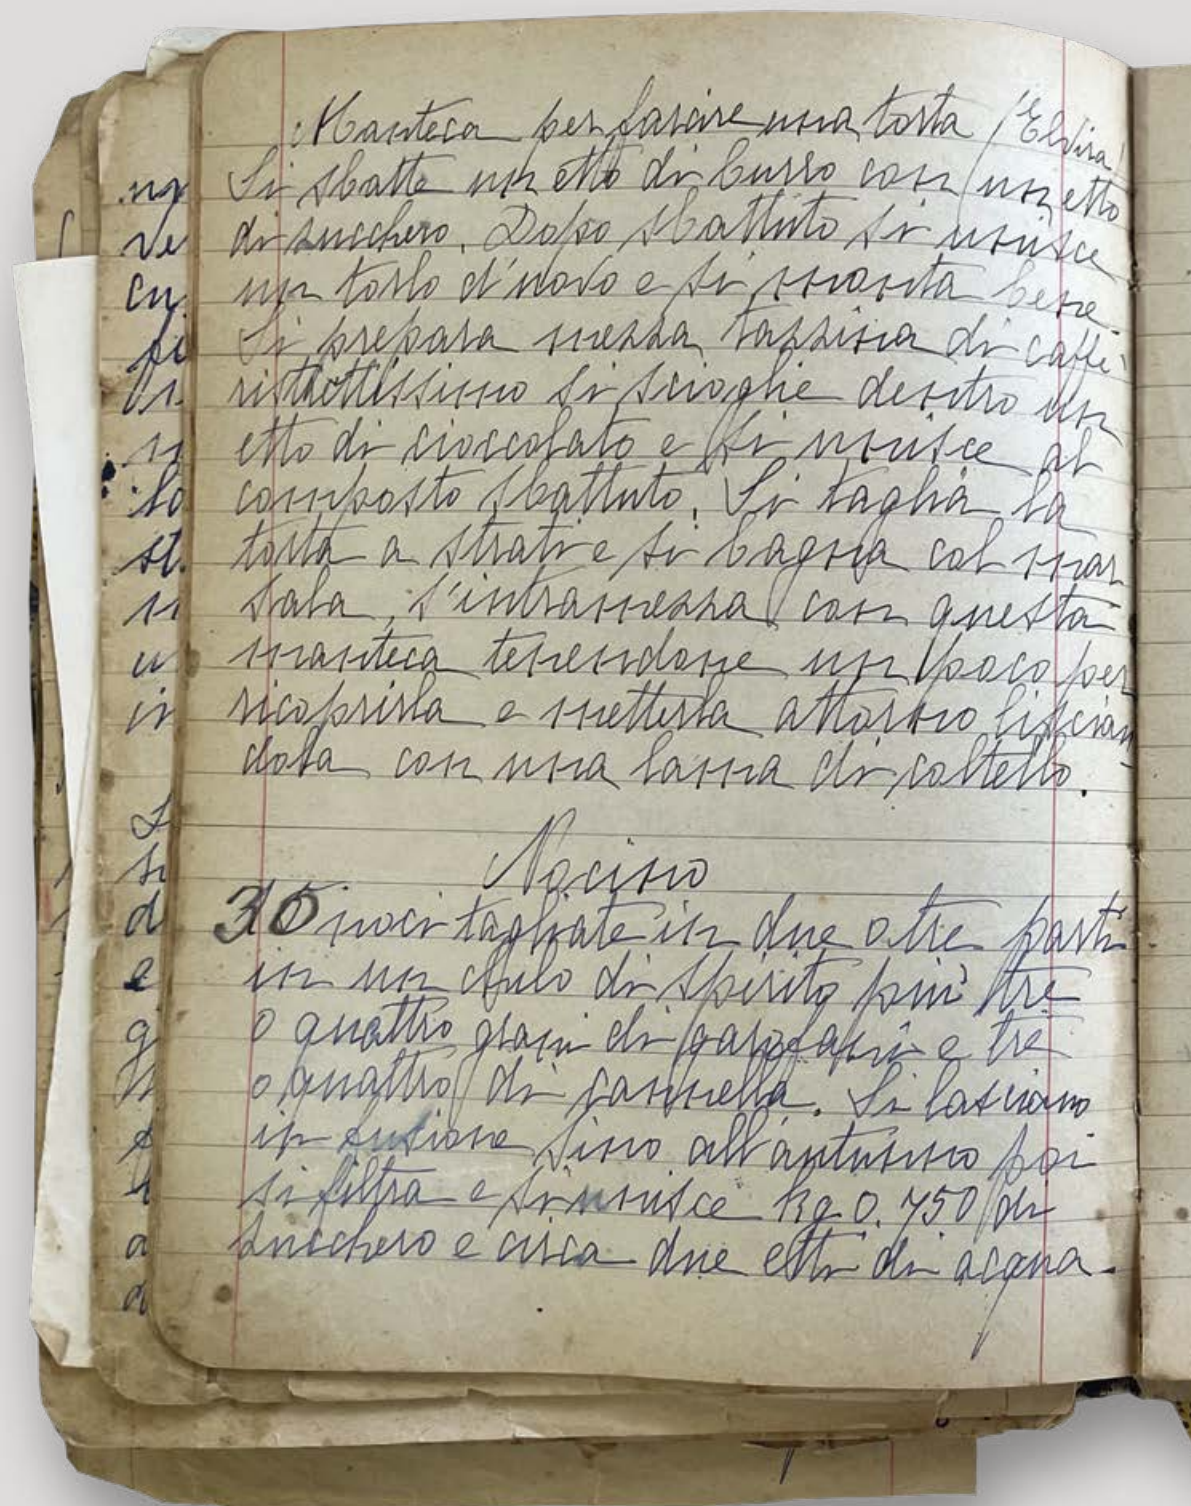 Manteca per farcire una torta (Elvira)
Si sbatte un etto di burro con un etto
di zucchero. Dopo sbattuto si unisce
un torlo d'uovo e si monta bene.
Si prepara mezza tazzina di caffè
ristrettissimo si scioglie dentro un
etto di cioccolato e si unisce al
composto sbattuto. Si taglia la
torta a strati e si bagna col mar
sala, s'intramezza con questa
manteca tenendone un poco per
ricoprirla e metterla attorno liscian
dola con una lama di coltello.
Nocino
35 noci tagliate in due o tre parti
in un chilo di spirito più tre
o quattro grani di garofani e tre
o quattro di cannella. Si lasciano
in fusione sino all'autunno poi
si filtra e si unisce kg 0.750 di
zucchero e circa due etti di acqua.
ve
cu
si
un
n
lo
st
n
u
in
S
si
d
e
g
a
a